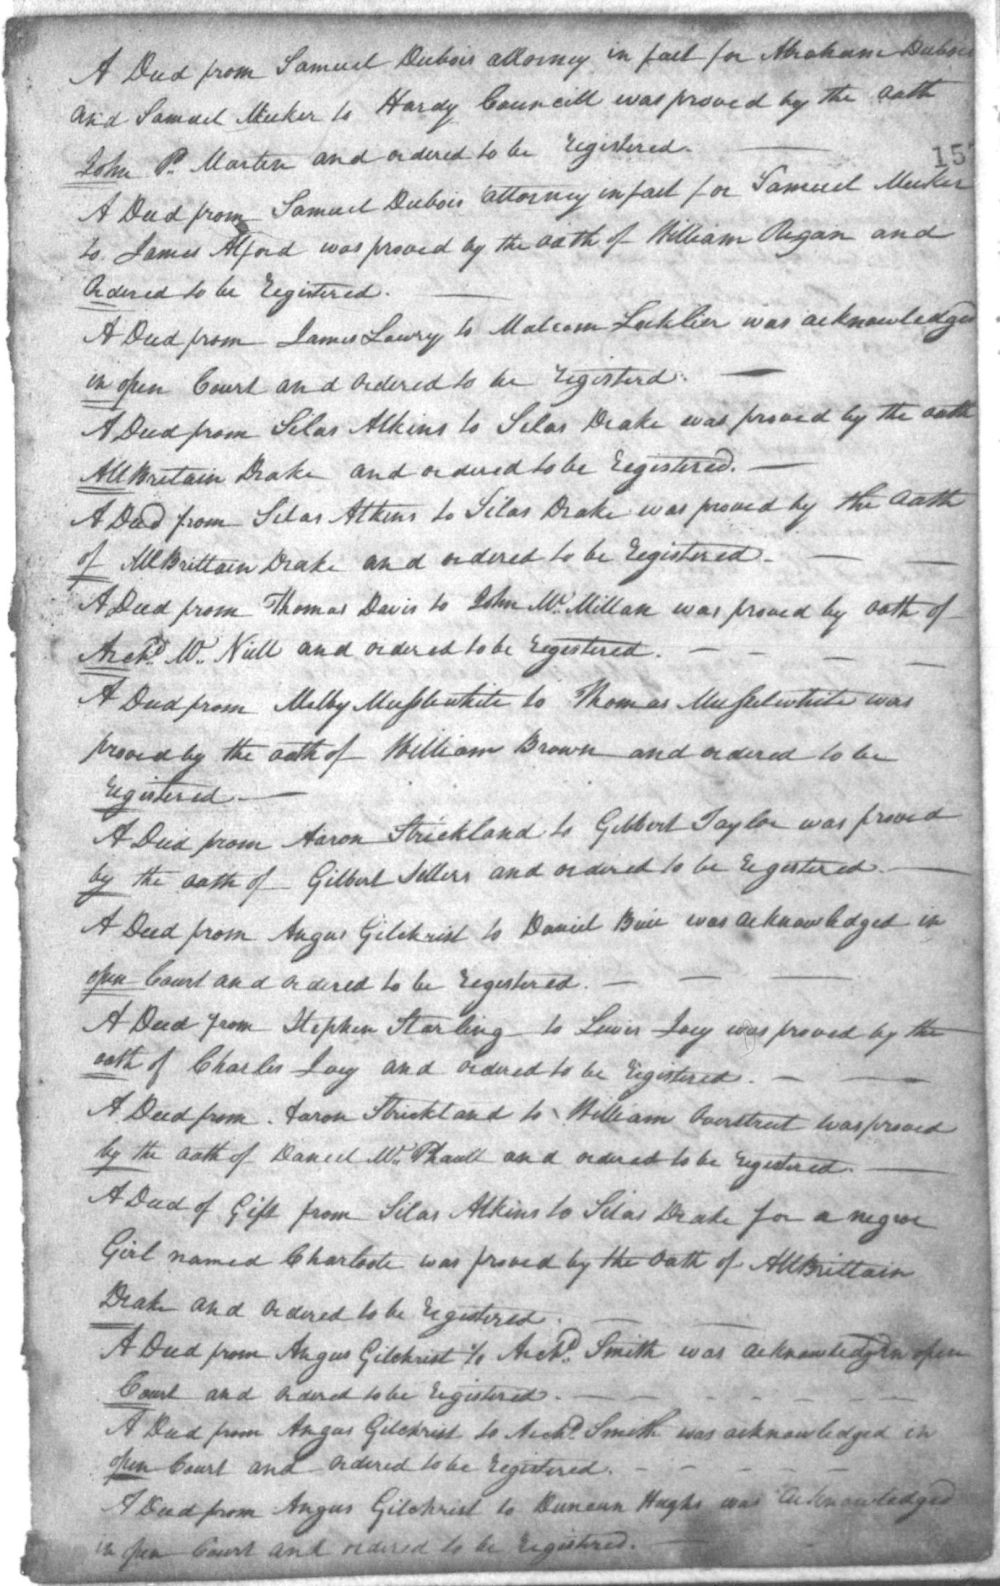 A Deed from Samuel Dubois attorney in fact for Abraham Dubois
and Samuel Meeker to Hardy Councill was proved by the oath
John P. Martin and ordered to be registered.
157
A Deed from Samuel Dubois attorney in fact for Samuel Meeker
to James Alford was proved by the oath of William Regan and
Ordered to be Registered.
A Deed from James Lowry to Malcom Locklier was acknowledged
in open Court and ordered to be registerd.
A Deed from Silas Atkins to Silas Drake was proved by the oath
AllBretain Drake and ordered to be Registered.
A Deed from Silas Atkins to Silas Drake was proved by the oath
of AllBrittain Drake and ordered to be Registered.
A Deed from Thomas Davis to John Mc. Millan was proved by oath of
Archd. Mc. Neill and ordered to be registered.
A Deed from Melby Musslewhite to Thomas Musselwhite was
proved by the oath of William Brown and ordered to be
registered.
A Deed from Aaron Strickland to Gibbert Taylor was proved
by the oath of Gilbert Sellers and ordered to be registered.
A Deed from Angus Gilchrist to Daniel Buie was acknowledged in
open Court and ordered to be registered.
A Deed from Stephen Starling to Lewis Ivey was proved by the
oath of Charles Ivey and ordered to be registered.
A Deed from Aaron Strickland to William Overstreet was proved
by the oath of Daniel Mc. Phaull and ordered to be registered.
A Deed of Gift from Silas Atkins to Silas Drake for a negroe
Girl named Charlote was proved by the oath of AllBrittain
Drake and ordered to be registered.
A Deed from Angus Gilchrist to Archd. Smith was acknowledg in open
Court and ordered to be registered.
A Deed from Angus Gilchrist to Archd. Smith was acknowledged in
open Court and ordered to be registered.
A Deed from Angus Gilchrist to Duncan Hughs was acknowledged
in open Court and ordered to be registered.